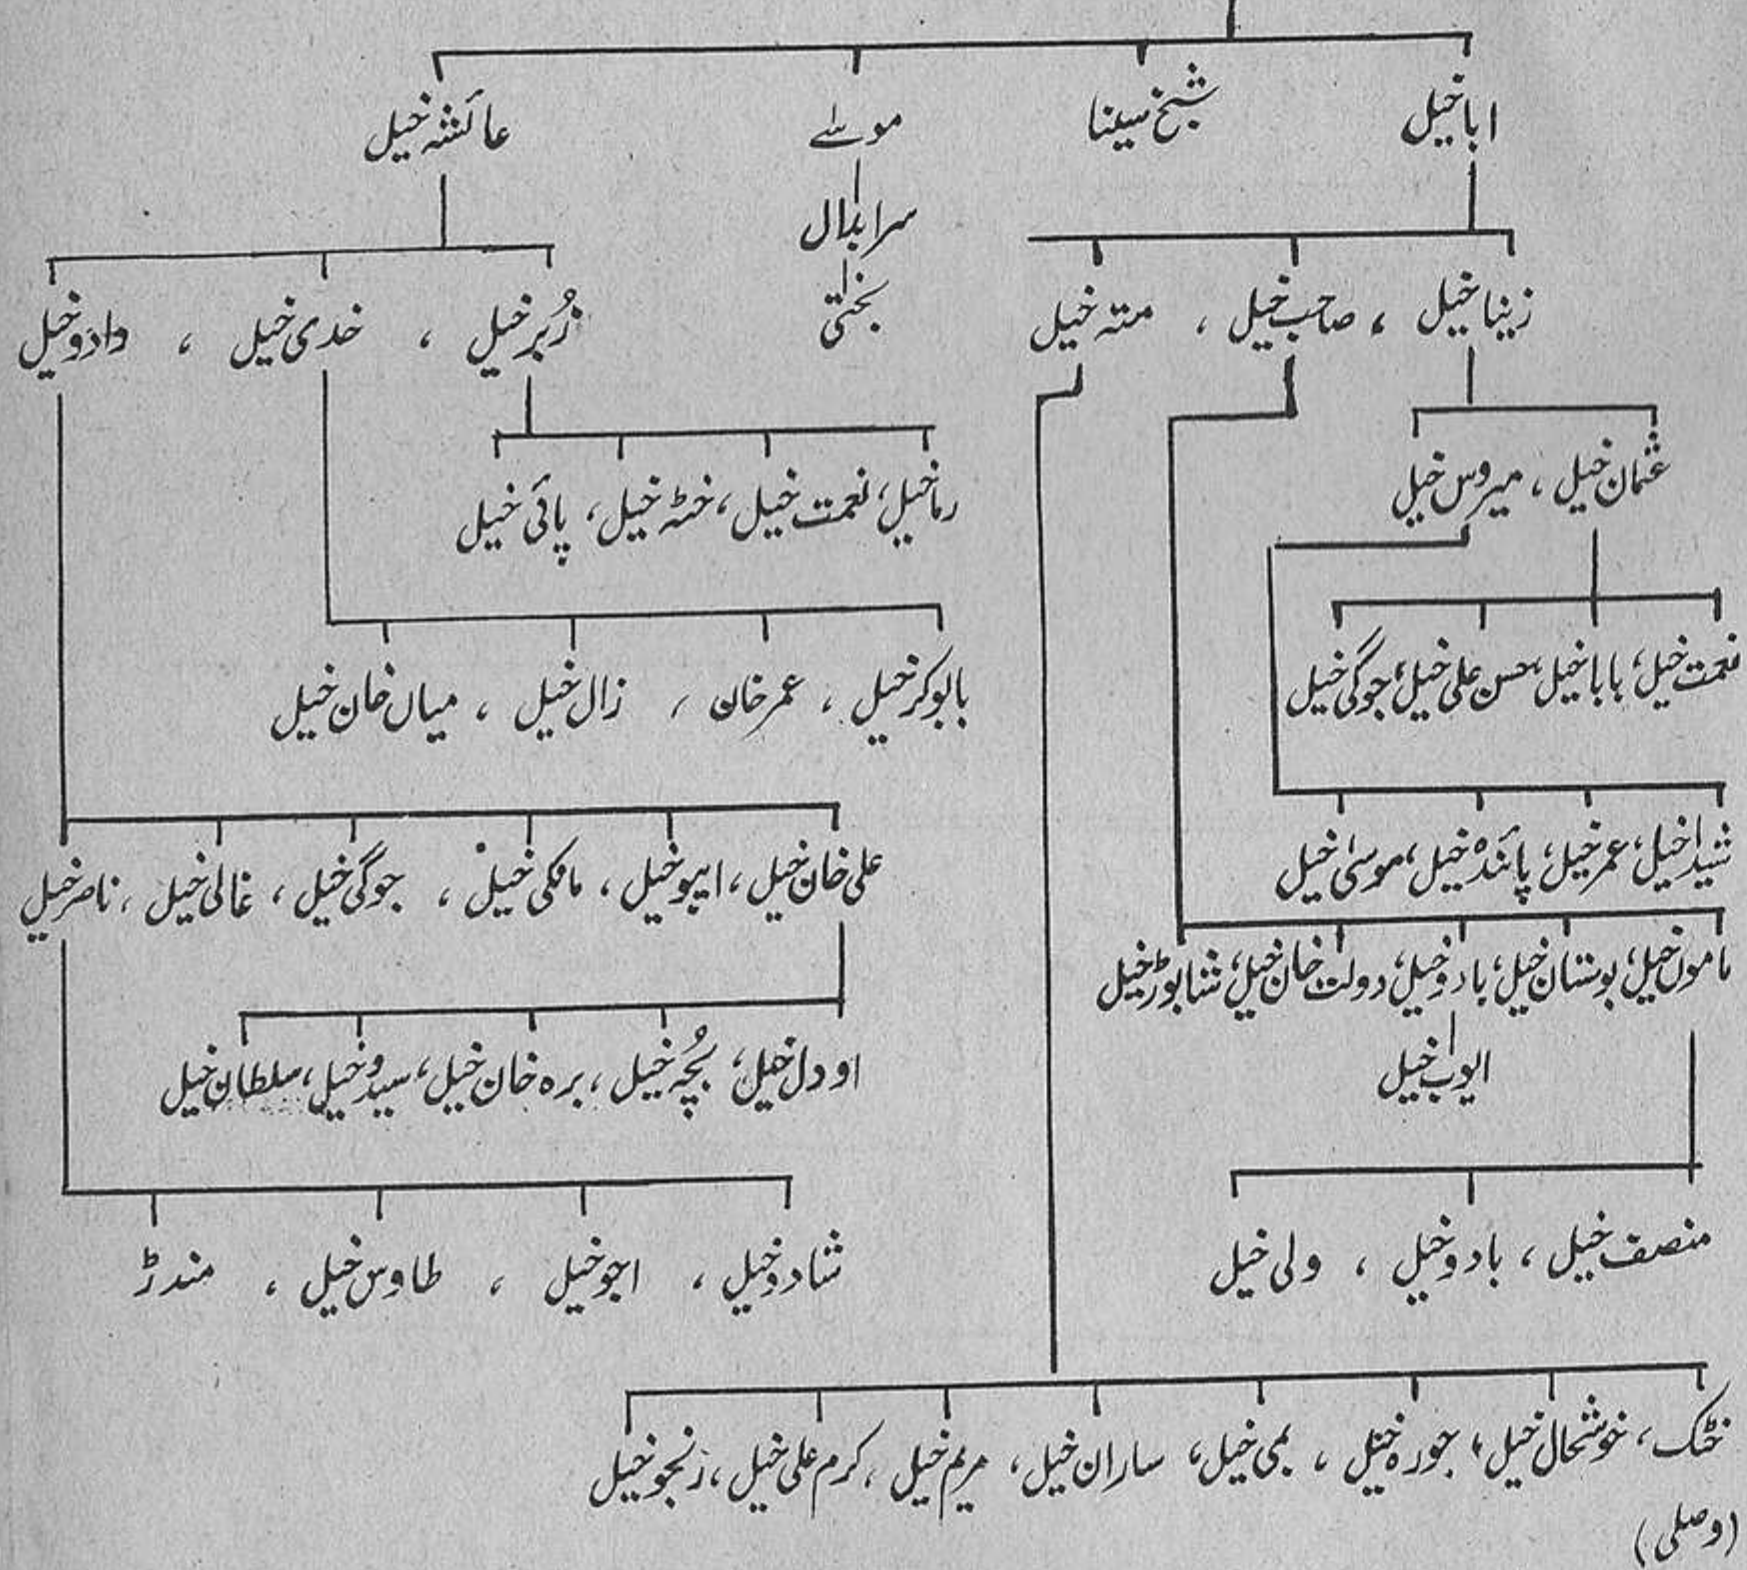 ابا خیل شیخ سینا موسےٰ عائشہ خیل
سرابدال
زینا خیل ، صاحب خیل ، متہ خیل
بختی
زُبر خیل ، خدی خیل ، دادو خیل
عثمان خیل ، میروس خیل
رما خیل، نعمت خیل، خٹہ خیل، پائی خیل
نعمت خیل، بابا خیل، حسن علی خیل، جوگی خیل
بابوکر خیل ، عمر خان ، زال خیل ، میاں خان خیل
شیدا خیل، عمر خیل، پائندہ خیل، موسیٰ خیل
علی خان خیل، اپپو خیل ، مافکی خیل ، جوگی خیل ، غالی خیل ، ناصر خیل
ماموں خیل، بوستان خیل، بادو خیل، دولت خان خیل، شابوڑ خیل
ایوب خیل
اودل خیل، بُچہ خیل، برہ خان خیل، سیدو خیل، سلطان خیل
منصف خیل ، بادو خیل ، ولی خیل
شادو خیل ، اجو خیل ، طاوس خیل ، مندڑ
خٹک، خوشحال خیل، جورہ خیل ، بمی خیل، ساران خیل، مریم خیل، کرم علی خیل، زنجو خیل
(وصلی)